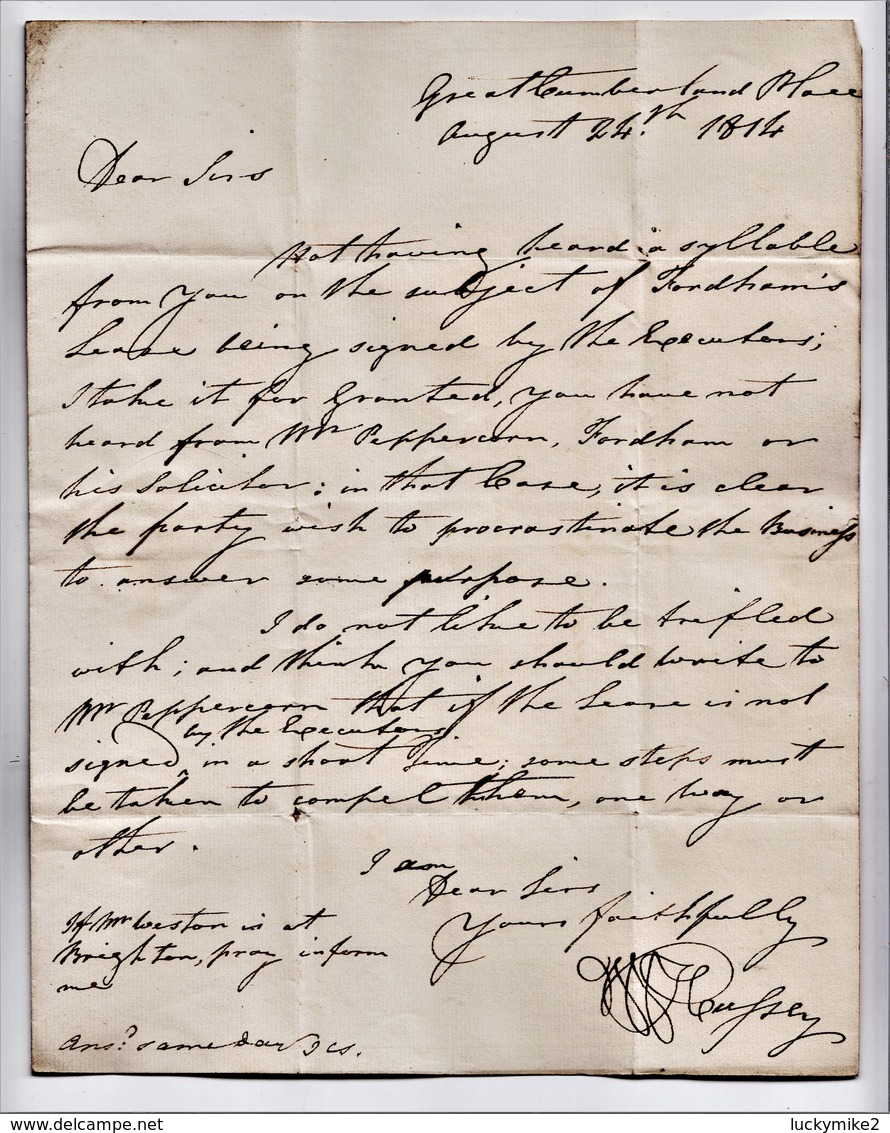 Great Cumberland Place
August 24.th 1814
Dear Sirs
Not having heard a syllable
from You on the subject of Fordham's
Lease being signed by the Executors;
I take it for Granted, you have not
heard from Mr Peppercorn, Fordham or
his Solicitor; in that Case, it is clear
the party wish to procrastinate the Business
to answer some purpose.
I do not like to be trifled
with; and think you should write to
Mr Peppercorn that if the Lease is not
by the Executors
signed in a short time; some steps must
be taken to compel them, one way or
other.
I am
Dear Sirs
Yours faithfully
Hussey
If Mr Weston is at
Brighton, pray inform
me
Ans.d same day
www.delcampe.net
luckymike2